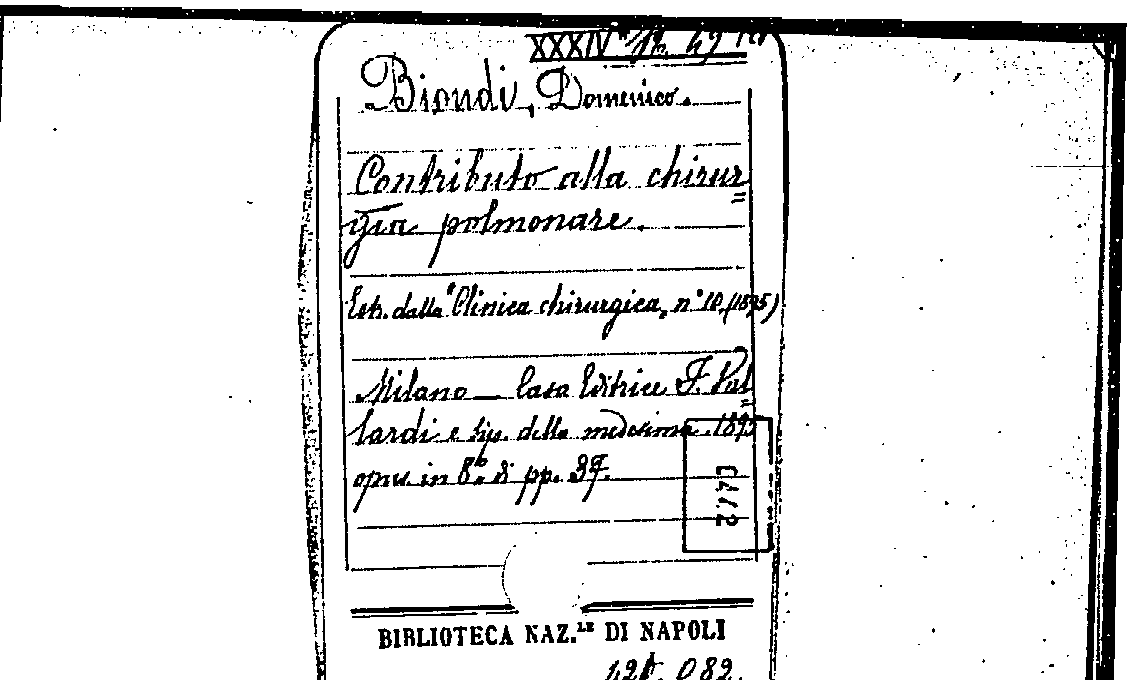 XXXIV
Biondi, Domenico.
Contributo alla chirur=
gia polmonare.
Estr. dalla "Clinica chirurgica" n° 10, (1895)
Milano – Casa Editrice F. Val=
lardi e tip. della medesima. 1895
opus. in 8.° di pp. 37.
0442
BIBLIOTECA NAZ.LE DI NAPOLI
082.